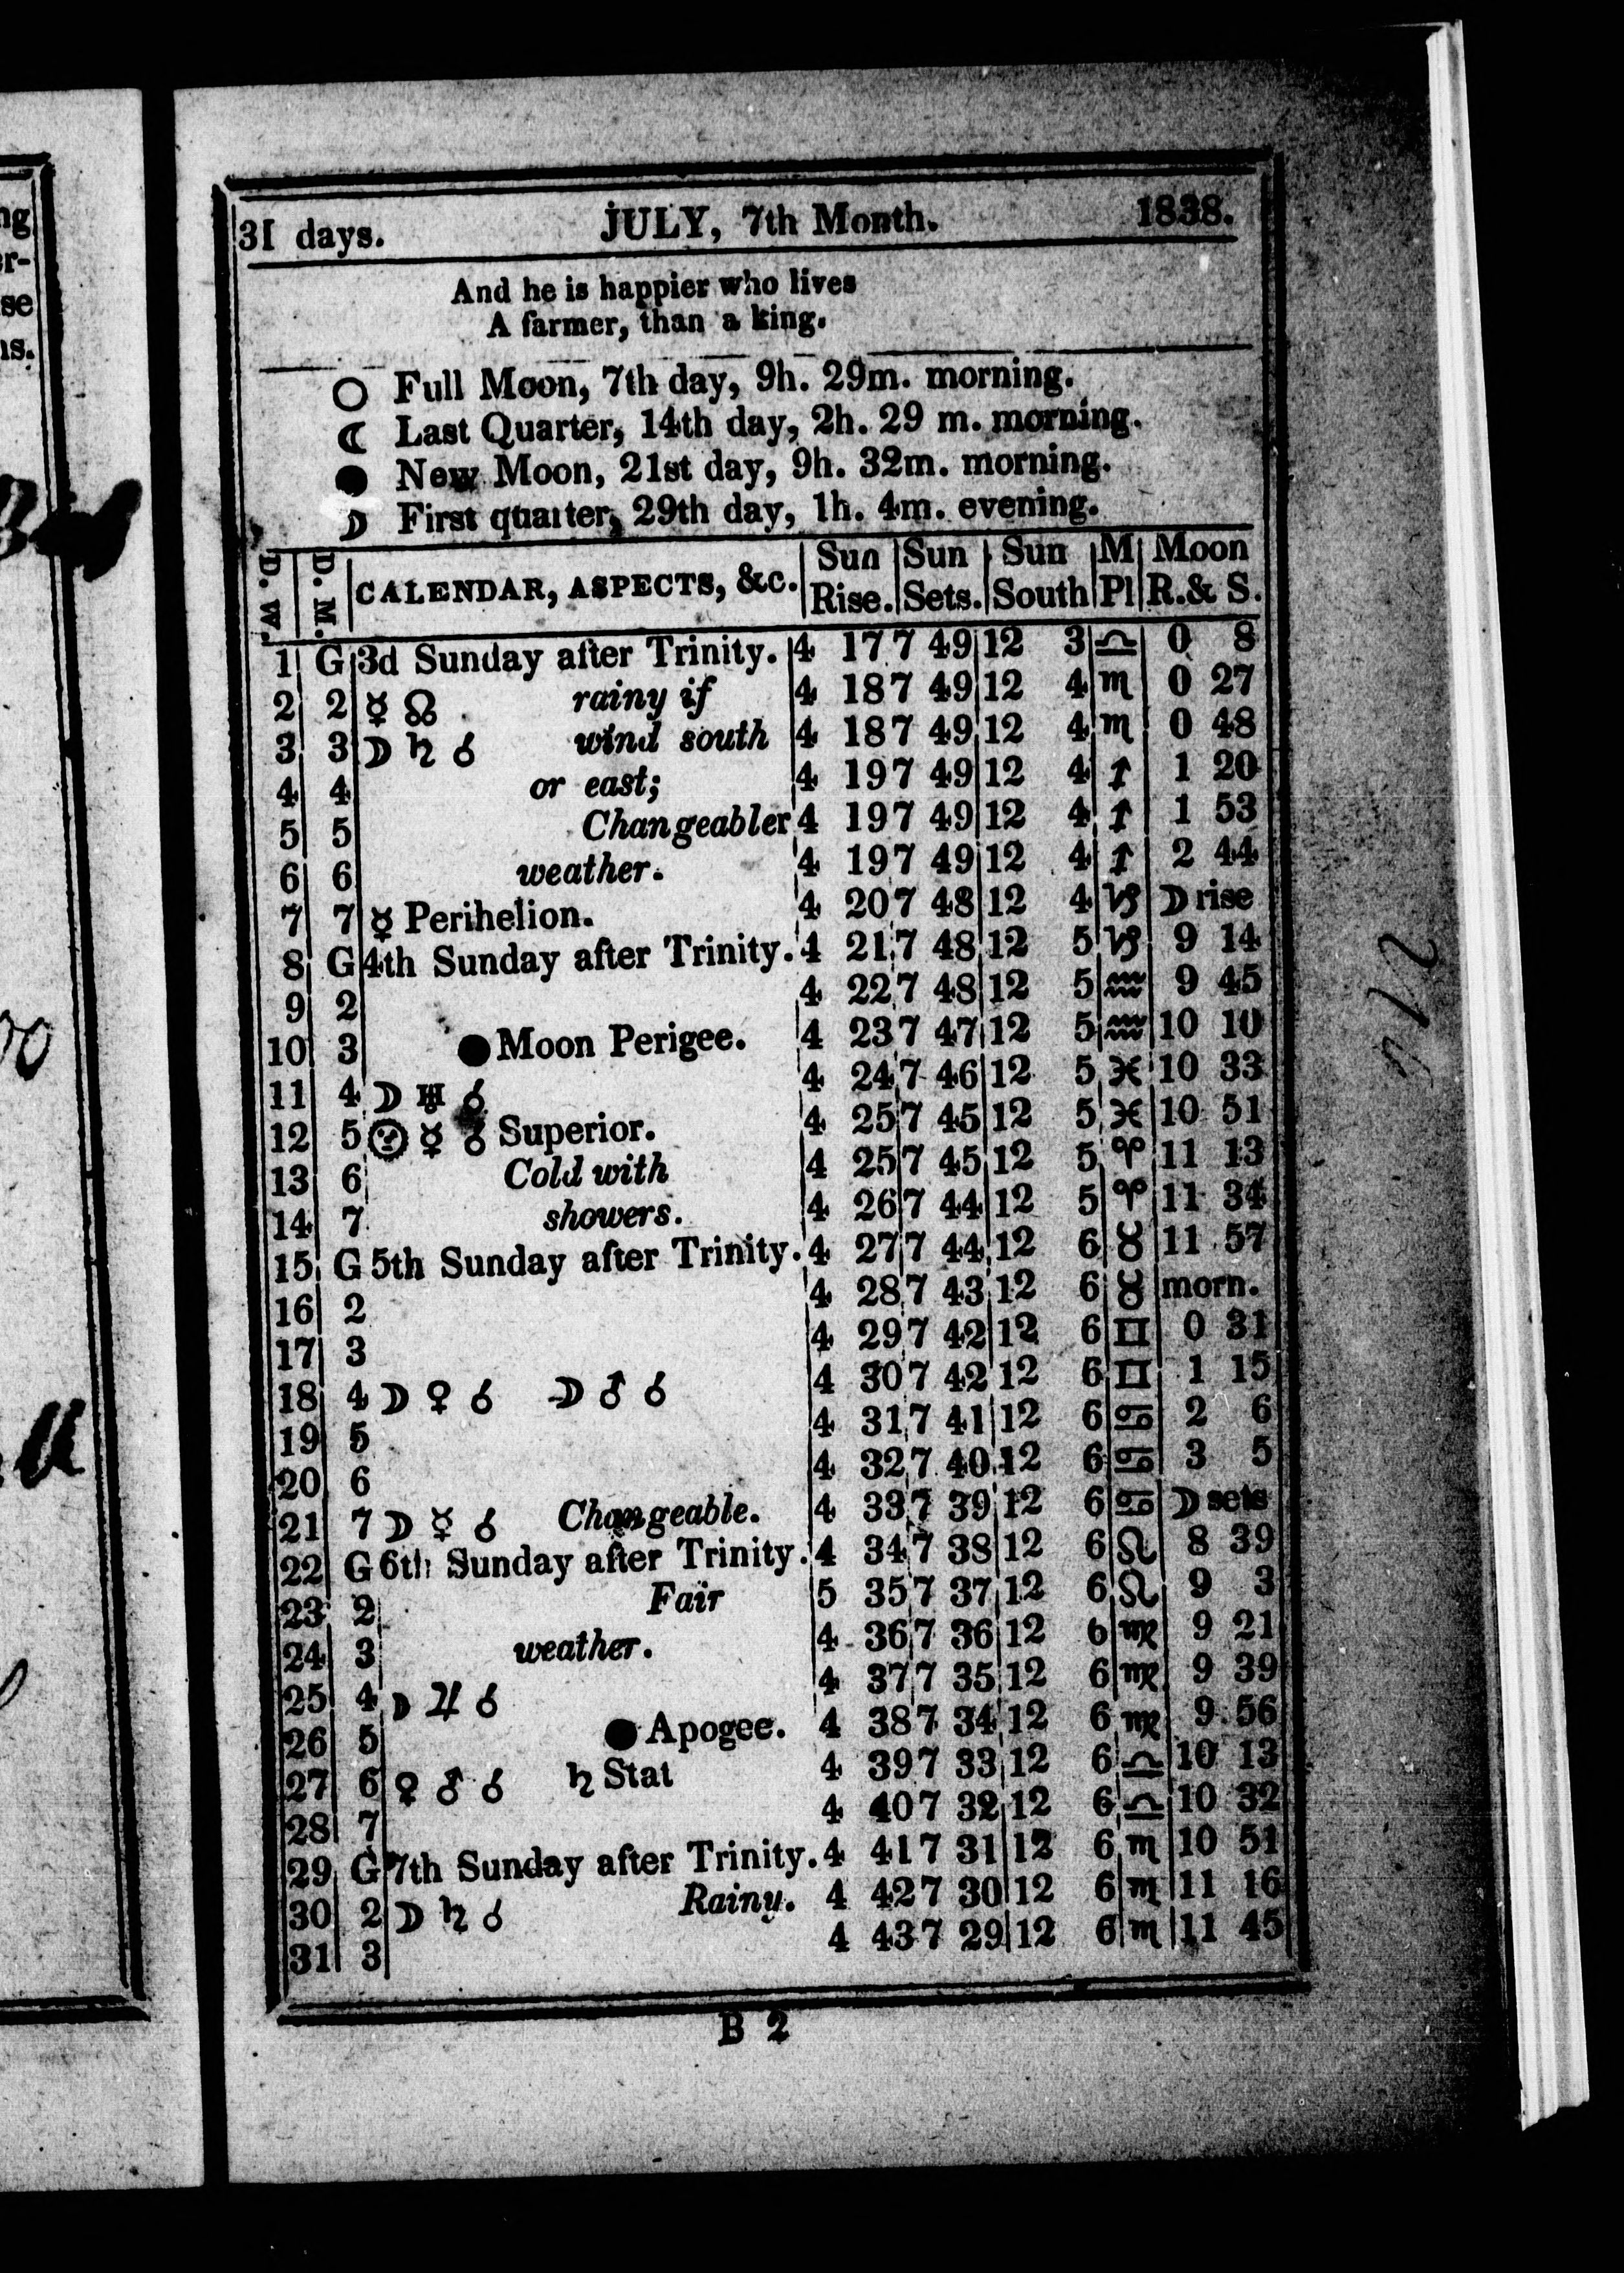 31 days. JULY, 7th Month. 1838.
And he is happier who lives
A farmer, than a king.
○ Full Moon, 7th day, 9h. 29m. morning.
☾ Last Quarter, 14th day, 2h. 29 m. morning.
● New Moon, 21st day, 9h. 32m. morning.
☽ First quarter, 29th day, 1h. 4m. evening.
D. W. D. M. CALENDAR, ASPECTS, &c. Sun Rise. Sun Sets. Sun South M Pl Moon R. & S.
1 G 3d Sunday after Trinity. 4 17 7 49 12 3 ♎ 0 8
2 2 ☿ ☊ rainy if 4 18 7 49 12 4 ♏ 0 27
3 3 ☽ ♄ ☌ wind south 4 18 7 49 12 4 ♏ 0 48
4 4 or east; 4 19 7 49 12 4 ♐ 1 20
5 5 Changeabler 4 19 7 49 12 4 ♐ 1 53
6 6 weather. 4 19 7 49 12 4 ♐ 2 44
7 7 ☿ Perihelion. 4 20 7 48 12 4 ♑ ☽ rise
8 G 4th Sunday after Trinity. 4 21 7 48 12 5 ♑ 9 14
9 2 4 22 7 48 12 5 ♒ 9 45
10 3 ● Moon Perigee. 4 23 7 47 12 5 ♒ 10 10
11 4 ☽ ♅ ☌ 4 24 7 46 12 5 ♓ 10 33
12 5 ☉ ☿ ☌ Superior. 4 25 7 45 12 5 ♓ 10 51
13 6 Cold with 4 25 7 45 12 5 ♈ 11 13
14 7 showers. 4 26 7 44 12 5 ♈ 11 34
15 G 5th Sunday after Trinity. 4 27 7 44 12 6 ♉ 11 57
16 2 4 28 7 43 12 6 ♉ morn.
17 3 4 29 7 42 12 6 ♊ 0 31
18 4 ☽ ♀ ☌ ☽ ♂ ☌ 4 30 7 42 12 6 ♊ 1 15
19 5 4 31 7 41 12 6 ♋ 2 6
20 6 4 32 7 40 12 6 ♋ 3 5
21 7 ☽ ☿ ☌ Changeable. 4 33 7 39 12 6 ♋ ☽ sets
22 G 6th Sunday after Trinity. 4 34 7 38 12 6 ♌ 8 39
23 2 Fair 5 35 7 37 12 6 ♌ 9 3
24 3 weather. 4 36 7 36 12 6 ♍ 9 21
25 4 ☽ ♃ ☌ 4 37 7 35 12 6 ♍ 9 39
26 5 ● Apogee. 4 38 7 34 12 6 ♍ 9 56
27 6 ♀ ♂ ☌ ♄ Stat 4 39 7 33 12 6 ♎ 10 13
28 7 4 40 7 32 12 6 ♎ 10 32
29 G 7th Sunday after Trinity. 4 41 7 31 12 6 ♏ 10 51
30 2 ☽ ♄ ☌ Rainy. 4 42 7 30 12 6 ♏ 11 16
31 3 4 43 7 29 12 6 ♏ 11 45
B 2